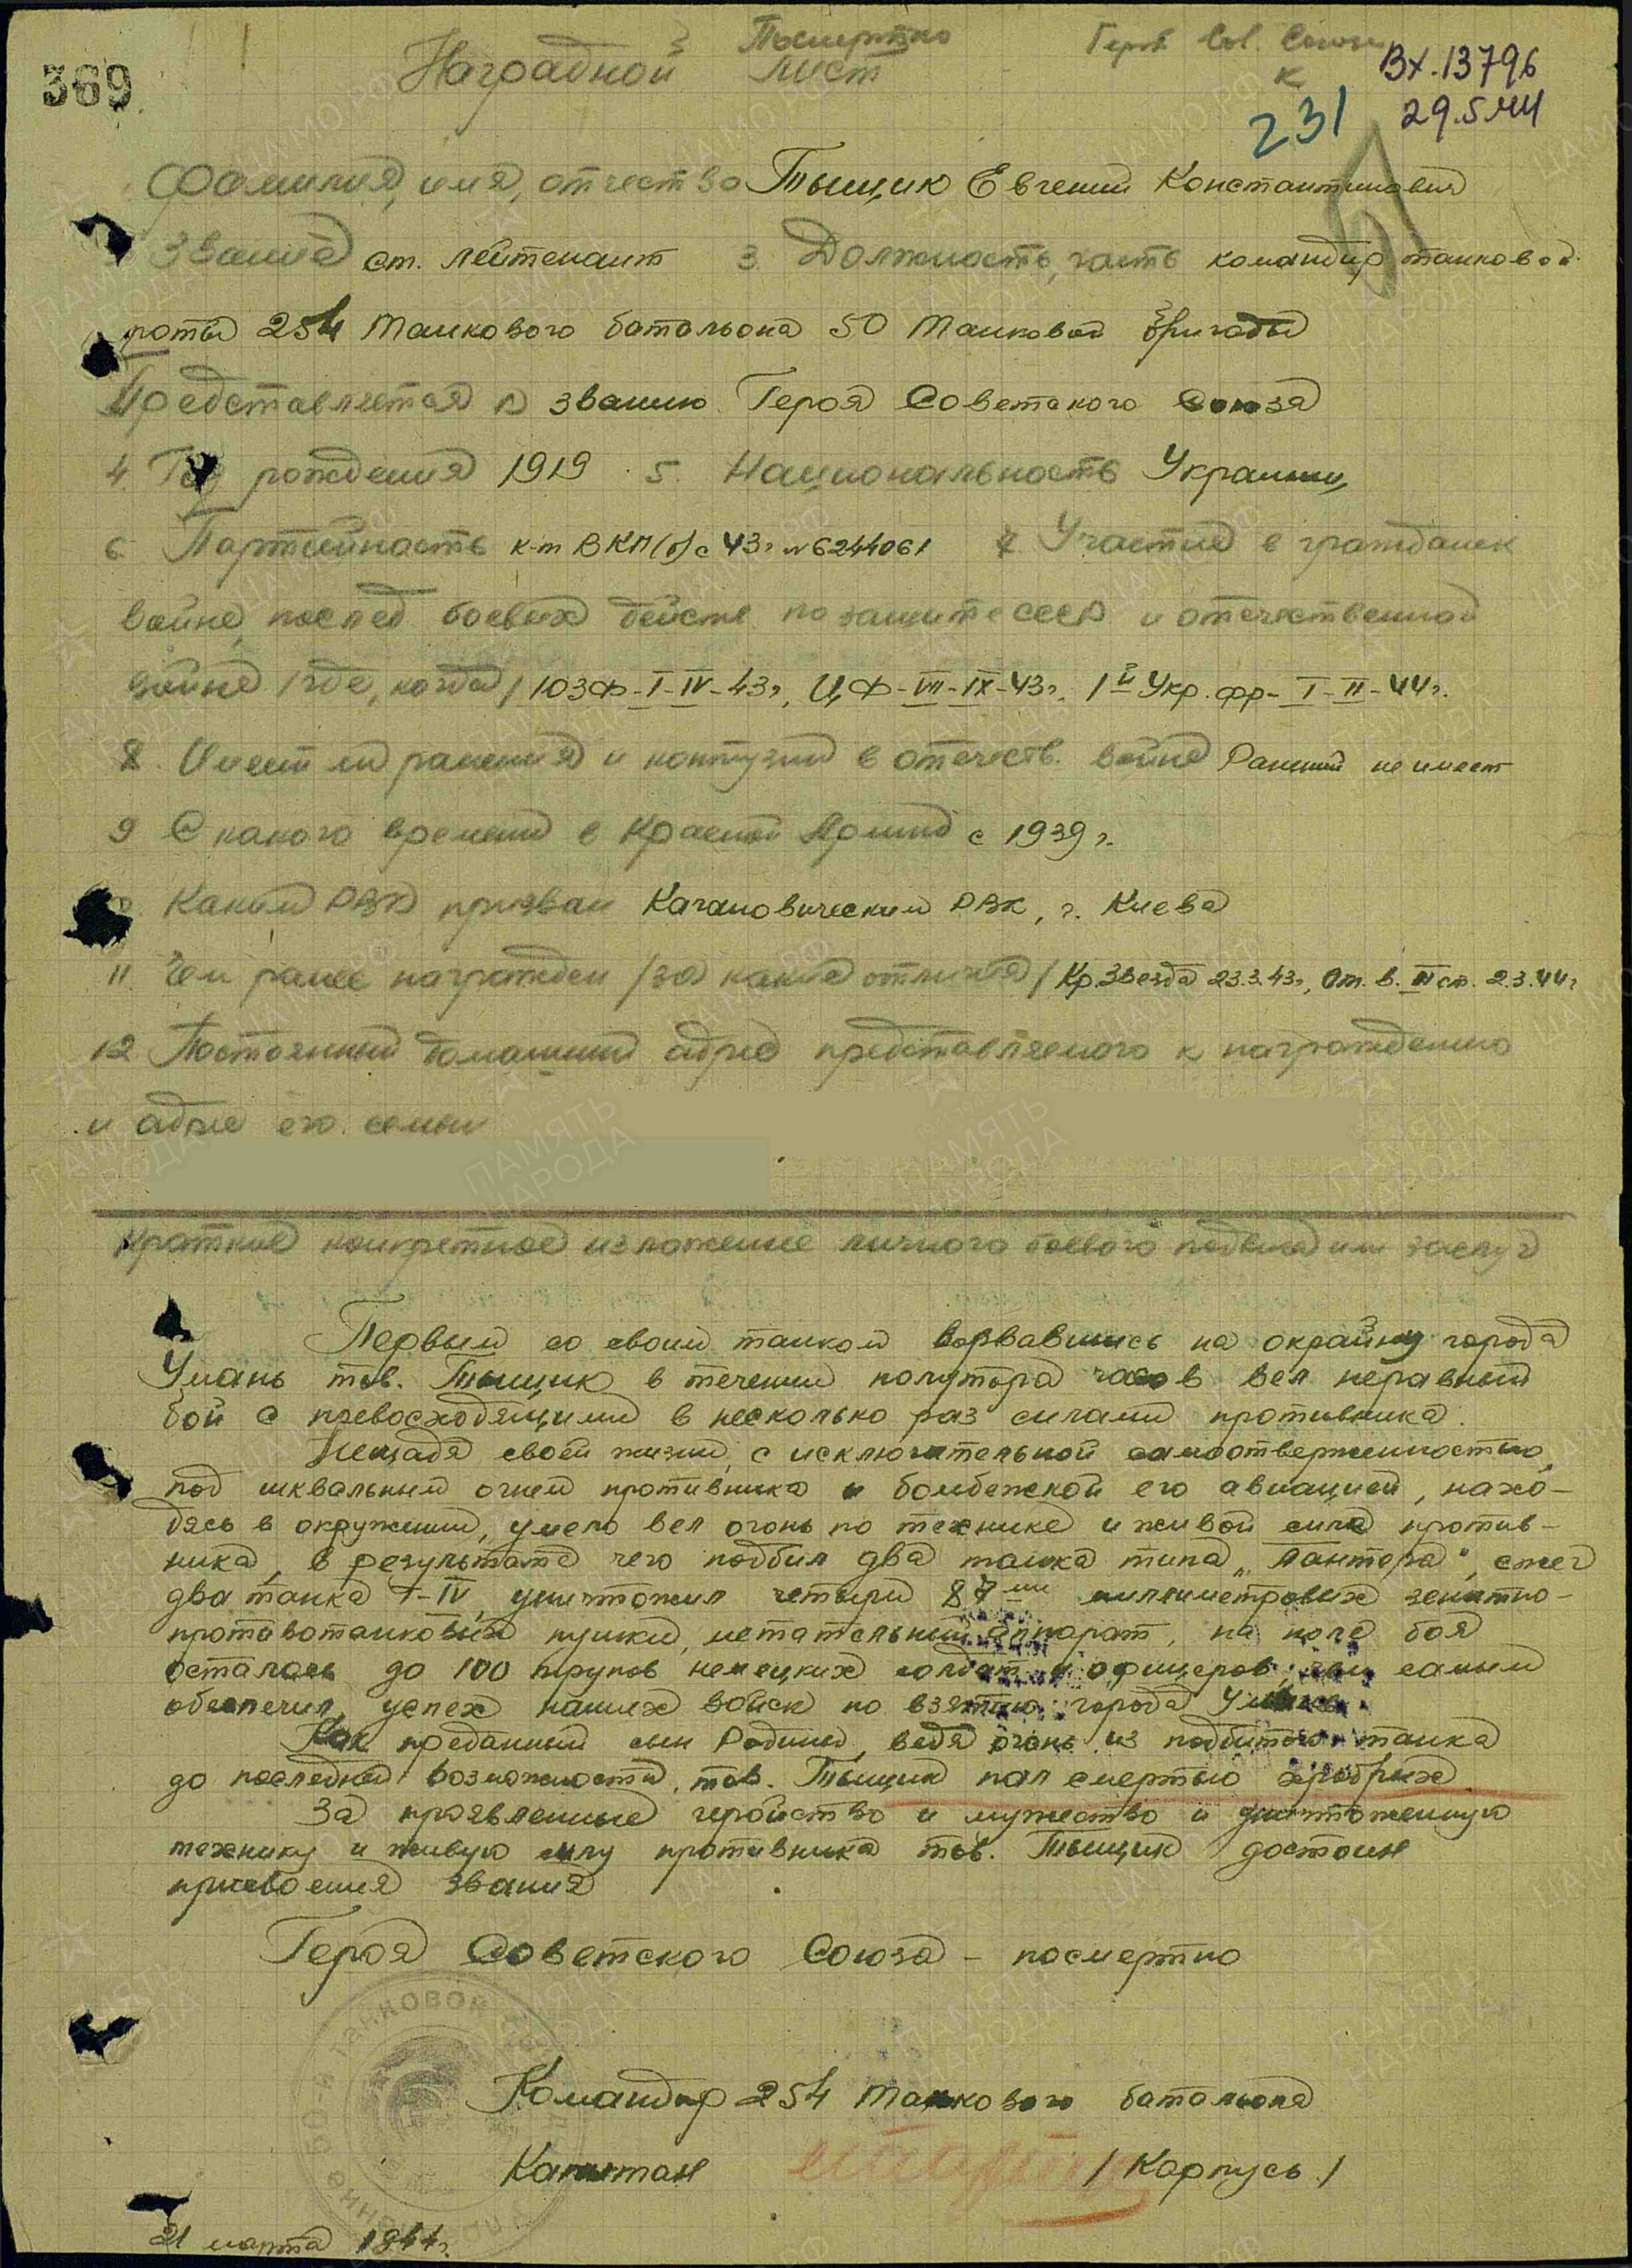 369
Посмертно
Герой Сов. Союза
Наградной лист
к
Вх. 13796
231
29.5.44
Фамилия, имя, отчество Тыщик Евгений Константинович
Звание ст. лейтенант 3 Должность, часть командир танковой
роты 254 танкового батальона 50 танковой бригады
Представляется к званию Героя Советского Союза
4. Год рождения 1919 5. Национальность Украинец
6 Партийность к-т ВКП(б) с 43г №6244061 7 Участие в гражданск
войне, послед боевых действ. по защите СССР и отечественной
войне /где, когда/ ЮЗФ-I-IV-43г, ЦФ-VII-IX-43г. 1й Укр. фр- I-II-44г.
8. Имеет ли ранения и контузии в отечеств. войне Ранений не имеет
9 С какого времени в Красной Армии с 1939 г.
Каким РВК призван Кагановическим РВК, г. Киева
11. Чем ранее награжден /за какие отличия/ Кр.Звезда 23.3.43г, От. в. ст. 2.3.44г
12 Постоянный домашний адрес представляемого к награждению
и адрес его семьи
Краткое конкретное изложение личного боевого подвига или заслуг
Первым со своим танком ворвавшись на окрайну города
Умань тов. Тыщик в течении полутора часов вел неравный
бой с превосходящими в несколько раз силами противника.
Нещадя своей жизни, с исключительной самоотверженностью,
под шквальным огнем противника и бомбежкой его авиацией, нахо-
дясь в окружении, умело вел огонь по технике и живой силе против-
ника, в результате чего подбил два танка типа „Пантера", сжег
два танка Т-IV, уничтожил четыре 87мм миллиметровых зенитно-
противотанковых пушки, метательный аппарат, на поле боя
осталось до 100 трупов немецких солдат и офицеров, чем самым
обеспечил успех наших войск по взятию города Умань.
Как преданный сын Родины, ведя огонь из подбитого танка
до последней возможности, тов. Тыщик пал смертью храбрых.
За проявленные геройство и мужество и уничтоженную
технику и живую силу противника тов. Тыщик достоин
присвоения звания
Героя Советского Союза - посмертно
Командир 254 танкового батальона
Капитан /Карпусь/
21 марта 1944г.